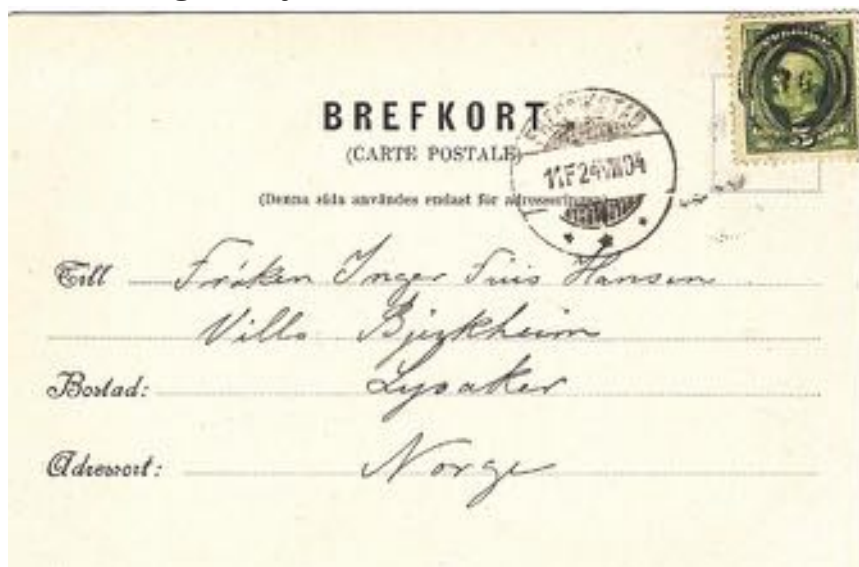 BREFKORT
(CARTE POSTALE)
(Denna sida användes endast för adresseringen)
11F24VIII04
Till Fröken Inger Hansen
Villa Bjerkheim
Bostad: Lysaker
Adressort: Norge